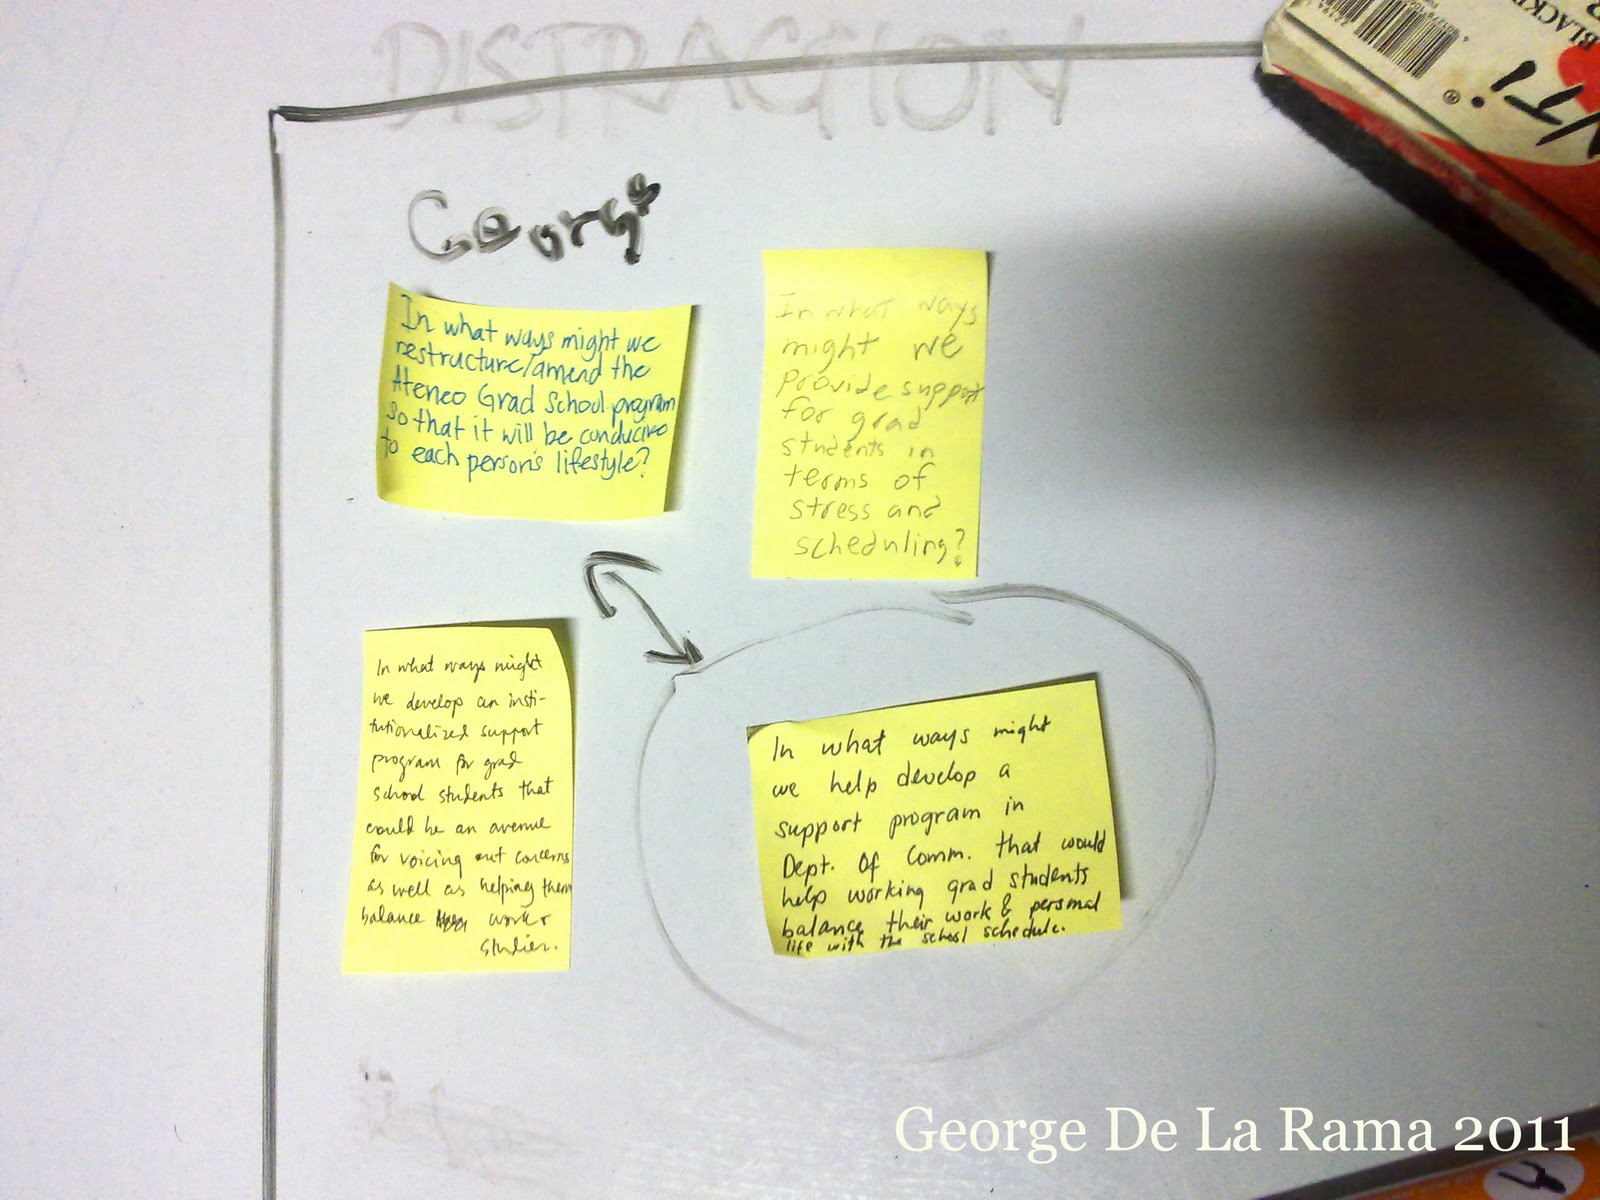 DISTRACTION
George
In what ways might we
restructure/amend the
Ateneo Grad School program
so that it will be conducive
to each person's lifestyle?
In what ways
might we
provide support
for grad
students in
terms of
stress and
scheduling?
In what ways might
we develop an insti-
tutionalized support
program for grad
school students that
could be an avenue
for voicing out concerns
as well as helping them
balance work &
studies.
In what ways might
we help develop a
support program in
Dept. Of Comm. that would
help working grad students
balance their work & personal
life with the school schedule.
George De La Rama 2011